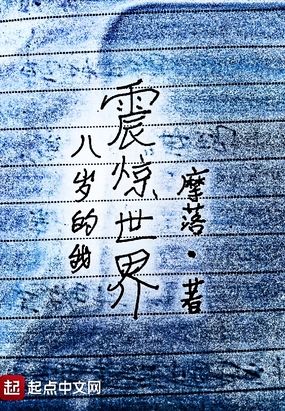 八岁的我
震惊世界
摩落·著
起 起点中文网